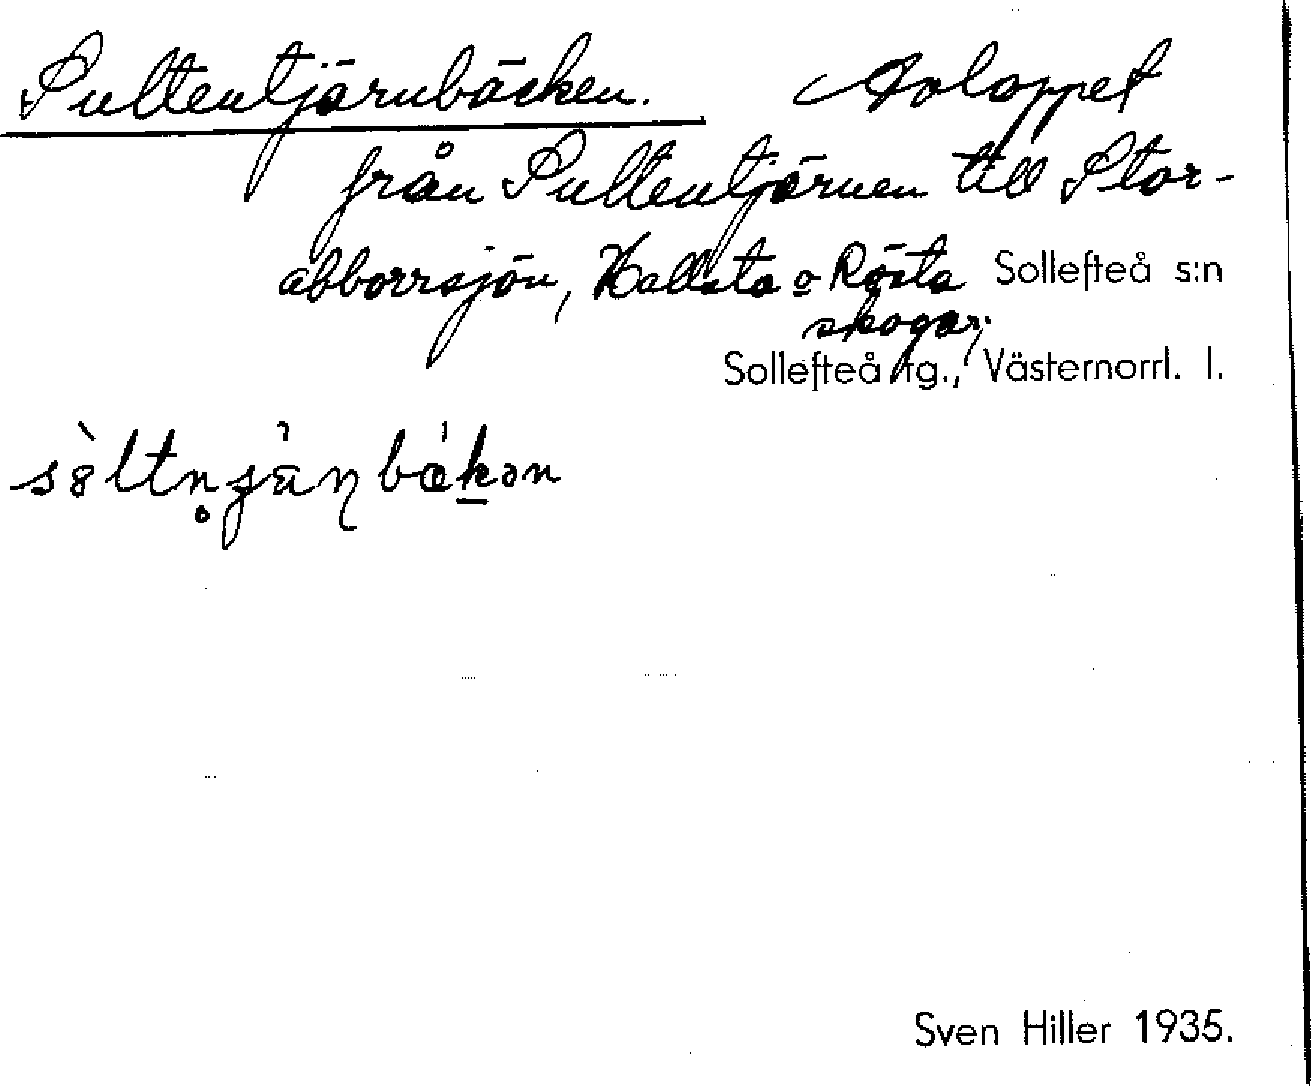 Sultentjärnbäcken. Avloppet
från Sultentjärnen till Stor-
abborrsjön, Hallsta o Rösta Sollefteå s:n
skogar.
Sollefteå tg., Västernorrl. l.
Sven Hiller 1935.